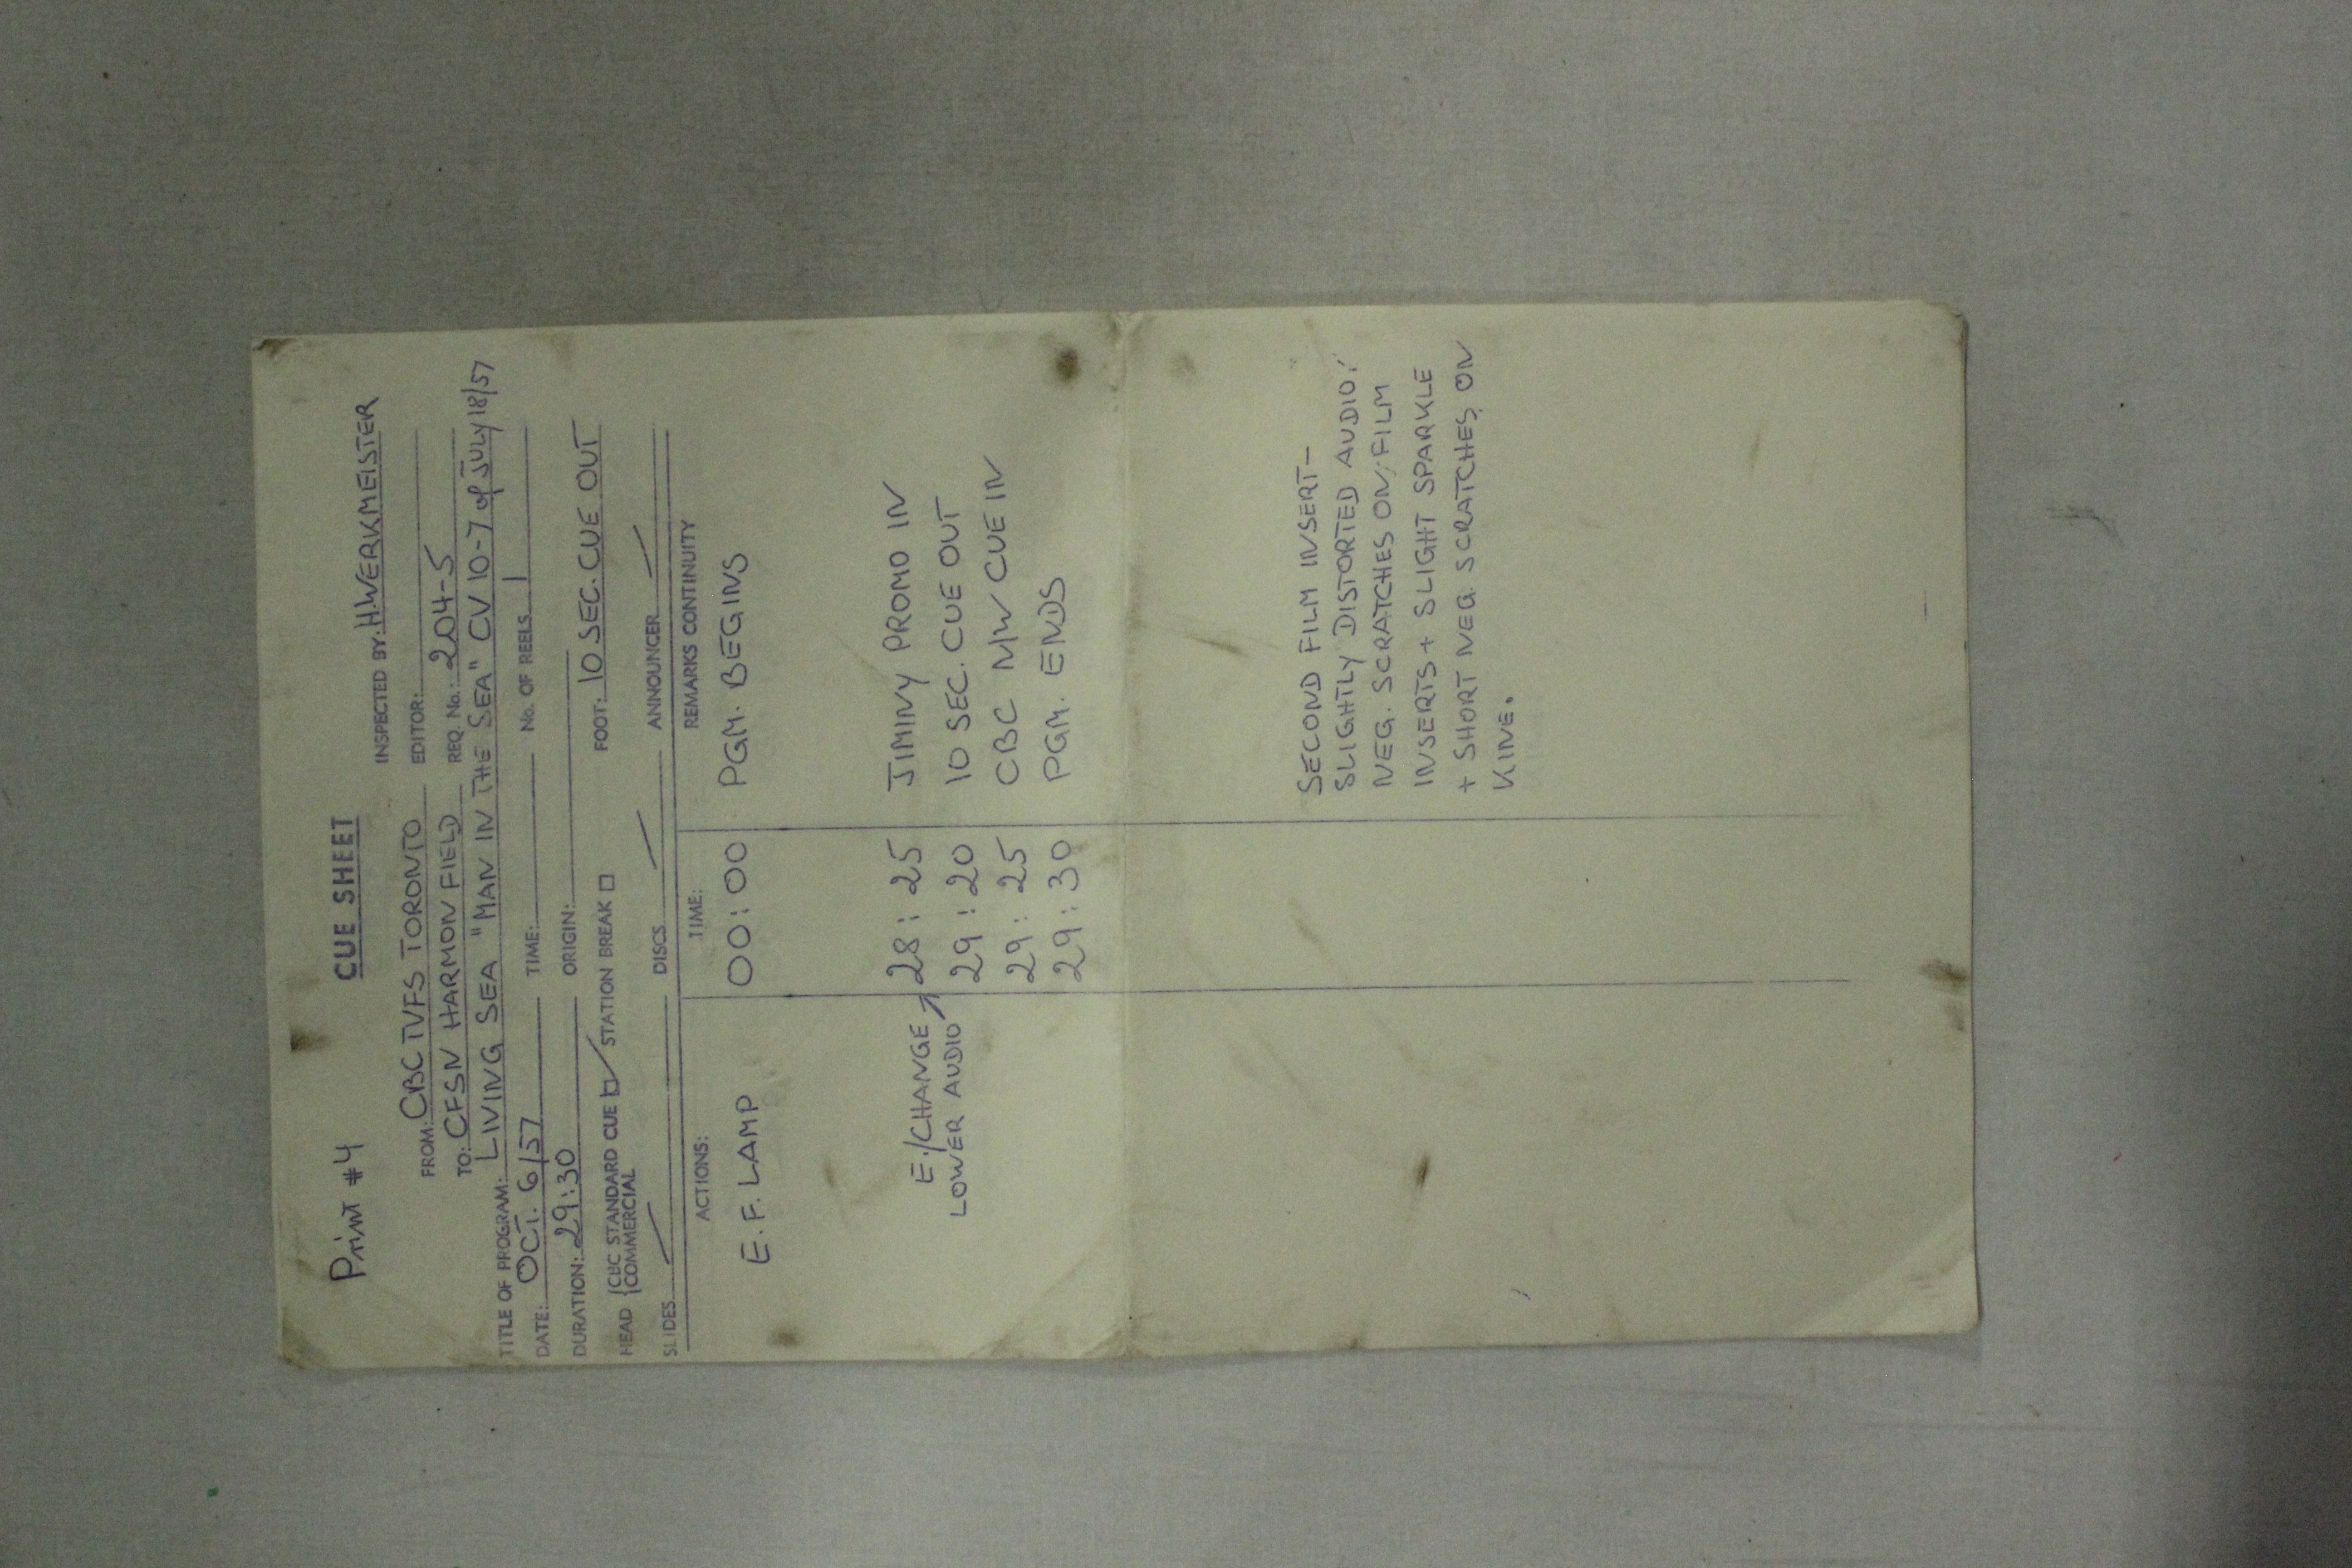 Print #4 CUE SHEET
INSPECTED BY: H.WERKMEISTER
FROM: CBC TVFS TORONTO EDITOR:
TO: CFSN HARMON FIELD REQ. No.: 204-5
TITLE OF PROGRAM: LIVING SEA "MAN IN THE SEA" CV 10-7 of JULY 18/57
DATE: OCT. 6/57 TIME: No. OF REELS 1
DURATION: 29:30 ORIGIN:
HEAD {CBC STANDARD CUE ☑ STATION BREAK ☐ FOOT: 10 SEC. CUE OUT
{COMMERCIAL
SLIDES DISCS ANNOUNCER
ACTIONS: TIME: REMARKS CONTINUITY
E. F. LAMP 00:00 PGM. BEGINS
E./CHANGE 28:25 JIMINY PROMO IN
LOWER AUDIO 29:20 10 SEC. CUE OUT
29:25 CBC M/W CUE IN
29:30 PGM. ENDS
SECOND FILM INSERT-
SLIGHTLY DISTORTED AUDIO!
NEG. SCRATCHES ON FILM
INSERTS + SLIGHT SPARKLE
+ SHORT NEG. SCRATCHES ON
KINE.